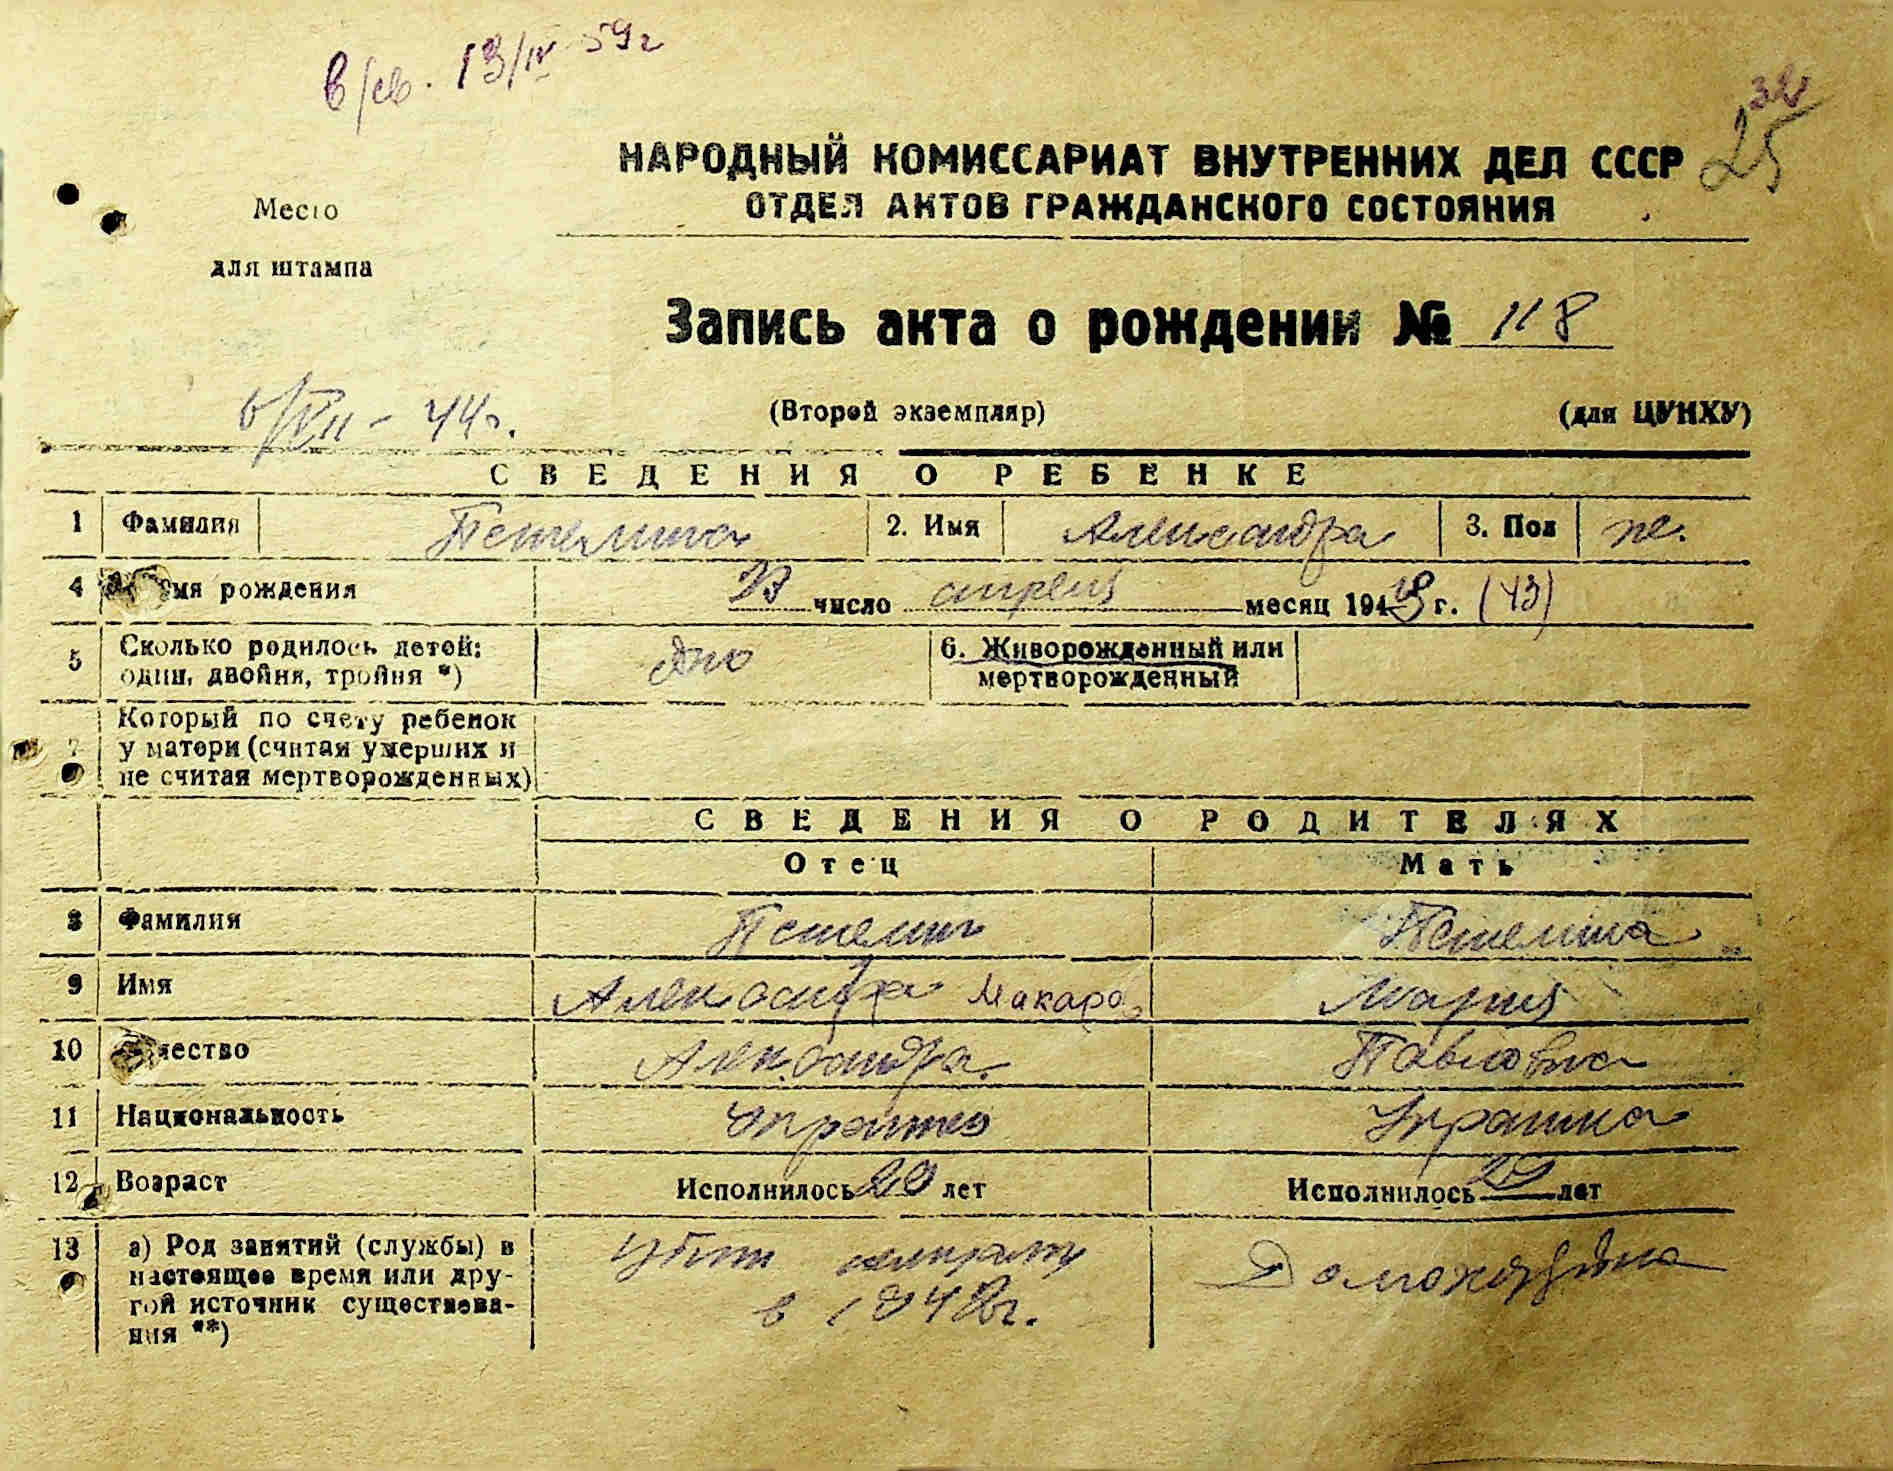 13/IV 59г
32
25
НАРОДНЫЙ КОМИССАРИАТ ВНУТРЕННИХ ДЕЛ СССР
ОТДЕЛ АКТОВ ГРАЖДАНСКОГО СОСТОЯНИЯ
Место
для штампа
Запись акта о рождении № 118
6/VII - 44г.
(Второй экземпляр) (для ЦУНХУ)
СВЕДЕНИЯ О РЕБЕНКЕ
1 Фамилия Петелина 2. Имя Александра 3. Пол ж.
4 рождения 23 число апреля месяц 1943 г. (43)
5 Сколько родилось детей: один, двойня, тройня *) одно 6. Живорожденный или мертворожденный
7 Который по счету ребенок
у матери (считая умерших и
не считая мертворожденных)
СВЕДЕНИЯ О РОДИТЕЛЯХ
Отец Мать
8 Фамилия Петелин Петелина
9 Имя Александра Макаро Мария
10 чество Александра. Павловна
11 Национальность Украинец Украинка
12 Возраст Исполнилось 29 лет Исполнилось 29 лет
13 а) Род занятий (службы) в
настоящее время или дру-
гой источник существова-
ния **)
Убит
в 1942г.
Домохозяйка